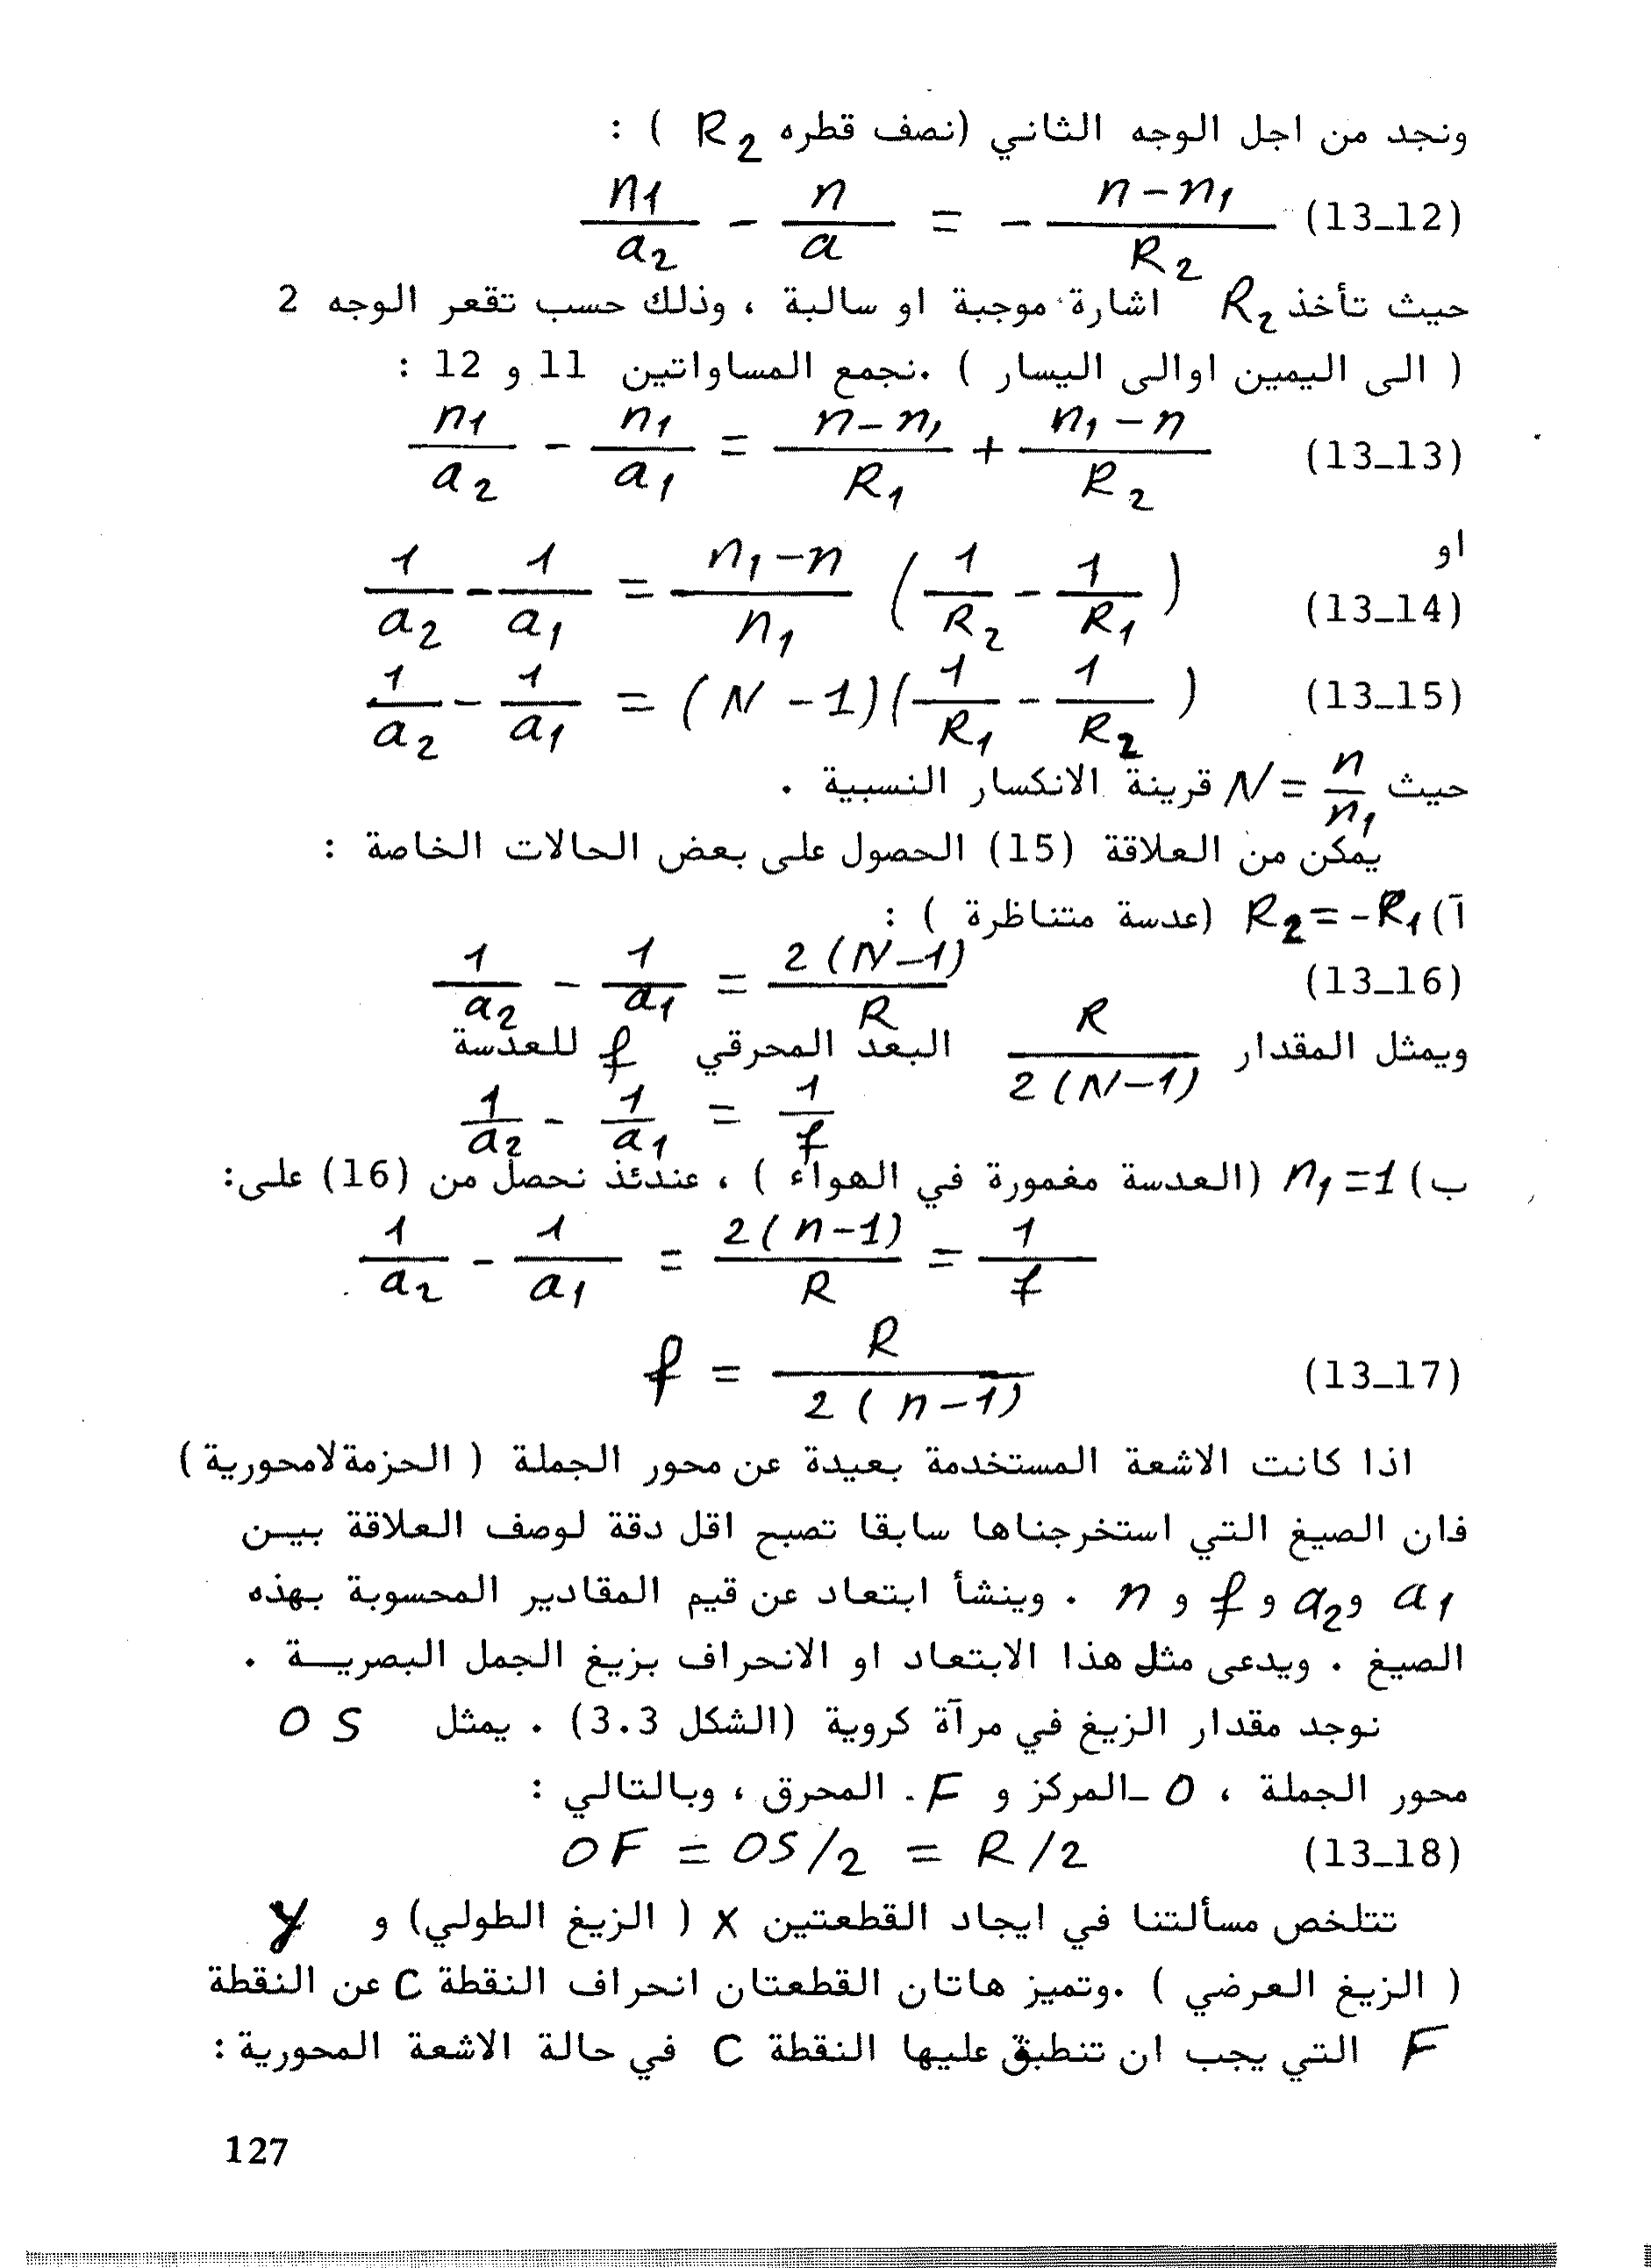 ونجد من اجل الوجه الثاني (نصف قطره R₂ ) :
n₁/a₂ - n/a = - (n-n₁)/R₂ (13_12)
حيث تأخذ R₂ اشارة موجبة او سالبة ، وذلك حسب تقعر الوجه 2
( الى اليمين اوالى اليسار ) .نجمع المساواتين 11 و 12 :
n₁/a₂ - n₁/a₁ = (n-n₁)/R₁ + (n₁-n)/R₂ (13_13)
او
1/a₂ - 1/a₁ = (n₁-n)/n₁ (1/R₂ - 1/R₁) (13_14)
1/a₂ - 1/a₁ = (N-1)(1/R₁ - 1/R₂) (13_15)
حيث N = n/n₁ قرينة الانكسار النسبية .
يمكن من العلاقة (15) الحصول على بعض الحالات الخاصة :
آ) R₂=-R₁ (عدسة متناظرة ) :
1/a₂ - 1/a₁ = 2(N-1)/R (13_16)
ويمثل المقدار R/2(N-1) البعد المحرقي f للعدسة
1/a₂ - 1/a₁ = 1/f
ب) n₁=1 (العدسة مغمورة في الهواء ) ، عندئذ نحصل من (16) على:
1/a₂ - 1/a₁ = 2(n-1)/R = 1/f
f = R/2(n-1) (13_17)
اذا كانت الاشعة المستخدمة بعيدة عن محور الجملة ( الحزمة لامحورية )
فان الصيغ التي استخرجناها سابقا تصبح اقل دقة لوصف العلاقة بين
a₁ و a₂ و f و n . وينشأ ابتعاد عن قيم المقادير المحسوبة بهذه
الصيغ . ويدعى مثل هذا الابتعاد او الانحراف بزيغ الجمل البصريــة .
نوجد مقدار الزيغ في مرآة كروية (الشكل 3.3) . يمثل O S
محور الجملة ، O _المركز و F _ المحرق ، وبالتالي :
OF = OS/2 = R/2 (13_18)
تتلخص مسألتنا في ايجاد القطعتين X ( الزيغ الطولي) و y
( الزيغ العرضي ) .وتميز هاتان القطعتان انحراف النقطة C عن النقطة
F التي يجب ان تنطبق عليها النقطة C في حالة الاشعة المحورية :
127